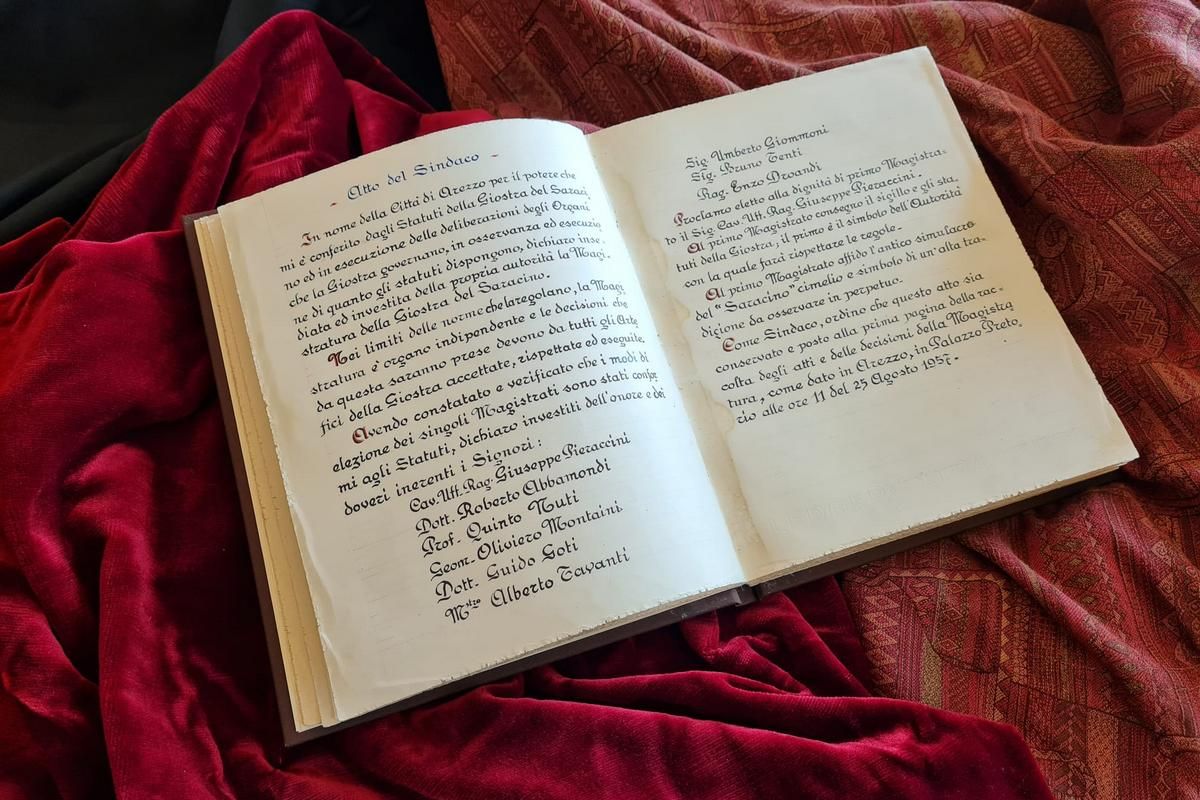 - Atto del Sindaco -
In nome della Città di Arezzo per il potere che
mi è conferito dagli Statuti della Giostra del Saraci,
no ed in esecuzione delle deliberazioni degli Organi
che la Giostra governano, in osservanza ed esecuzio
ne di quanto gli statuti dispongono, dichiaro inse-
diata ed investita della propria autorità la Magi-
stratura della Giostra del Saracino.
Nei limiti delle norme che la regolano, la Magi
stratura è organo indipendente e le decisioni che
da questa saranno prese devono da tutti gli Orte
fici della Giostra accettate, rispettate ed eseguite.
Avendo constatato e verificato che i modi di
elezione dei singoli Magistrati sono stati confor
mi agli Statuti, dichiaro investiti dell'onore e dei
doveri inerenti i Signori:
Cav. Uff. Rag. Giuseppe Pieraccini
Dott. Roberto Abbamondi
Prof. Quinto Nuti
Geom. Oliviero Montaini
Dott. Guido Goti
M.stro Alberto Tavanti
Sig. Umberto Giommoni
Sig. Bruno Tenti
Rag. Enzo Droandi
Proclamo eletto alla dignità di primo Magistra-
to il Sig. Cav. Uff. Rag. Giuseppe Pieraccini.
Al primo Magistrato consegno il sigillo e gli sta,
tuti della Giostra; il primo è il simbolo dell'Autorità
con la quale farà rispettare le regole.
Al primo Magistrato affido l'antico simulacro
del "Saracino" cimelio e simbolo di un'alta tra-
dizione da osservare in perpetuo.
Come Sindaco, ordino che questo atto sia
conservato e posto alla prima pagina della rac-
colta degli atti e delle decisioni della Magistra
tura, come dato in Arezzo, in Palazzo Preto,
rio alle ore 11 del 25 Agosto 1957.